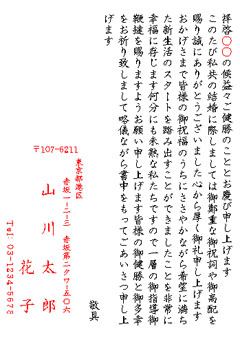 拝啓〇〇の候益々ご健勝のこととお慶び申し上げます
このたび私共の結婚に際しましては御鄭重な御祝詞や御高配を
賜り誠にありがとうございました心から厚く御礼申し上げます
おかげさまで皆様の御祝福のうちにささやかながら希望に満ち
た新生活のスタートを踏み出すことができましたことを非常に
幸福に存じます何分にも未熟な私たちですので一層の御指導御
鞭撻を賜りますようお願い申し上げます皆様の御健勝と御多幸
をお祈り致しまして略儀ながら書中をもってごあいさつ申し上
げます
敬具
〒107-6211
東京都港区
赤坂一-二-三 赤坂第二タワー五〇六
山川太郎
花子
Tel 03-1234-5678